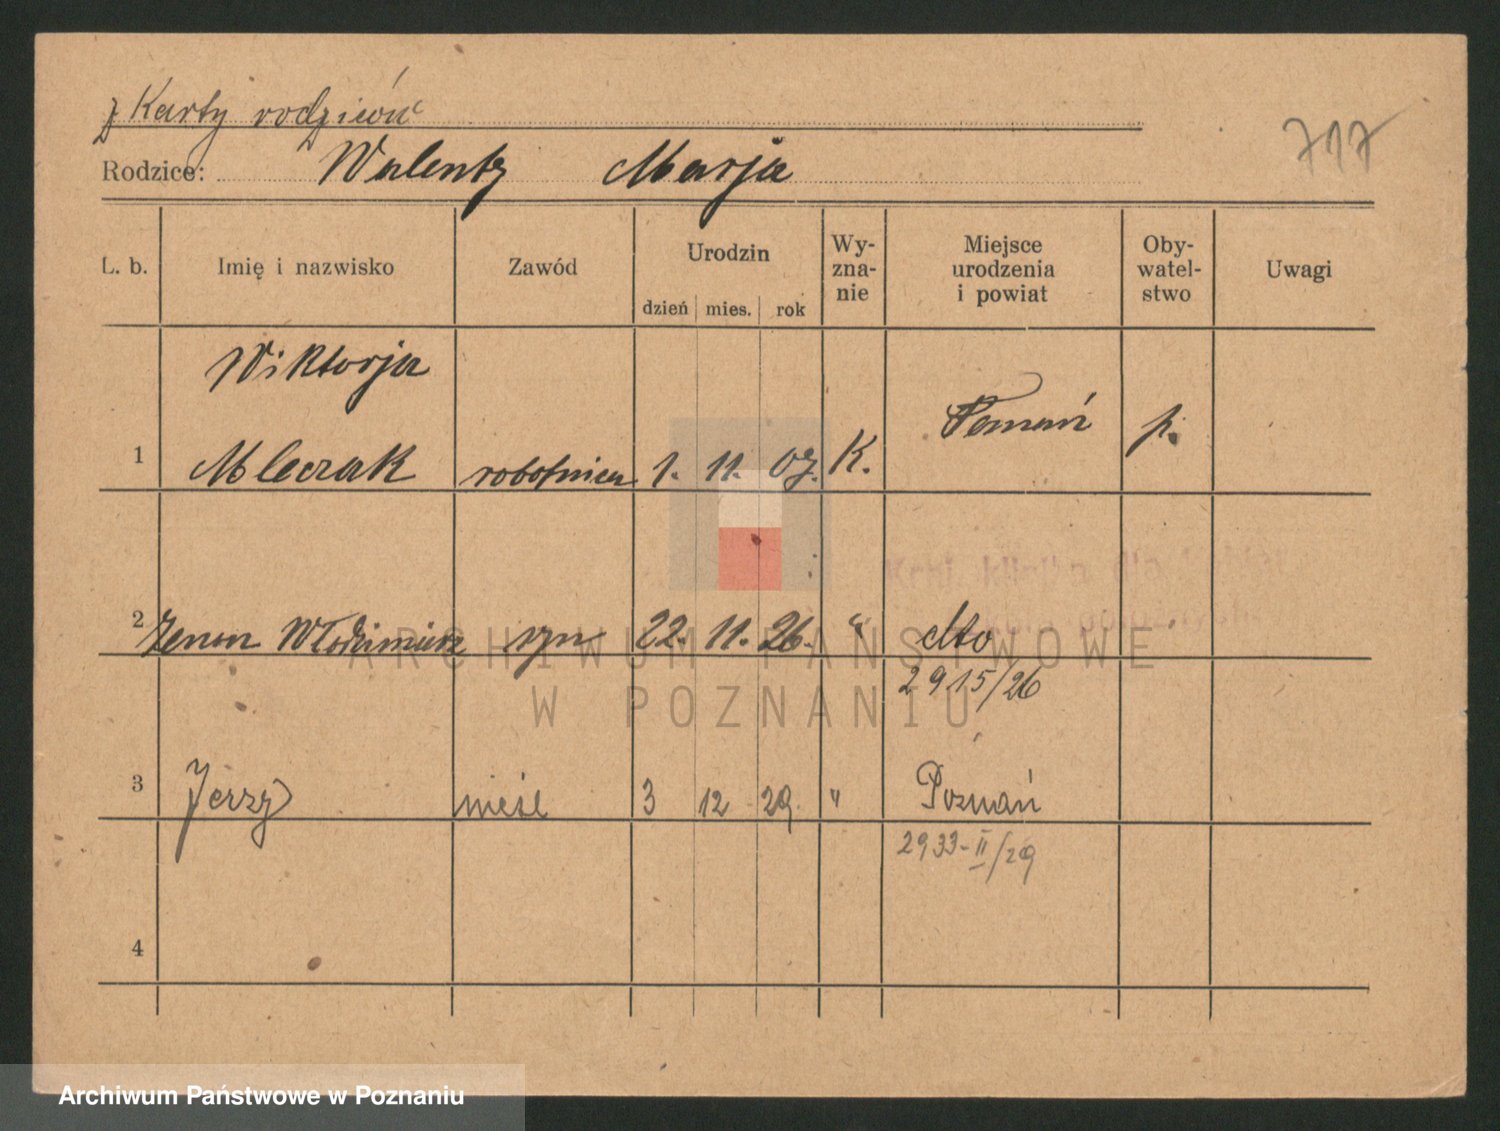 z Karty rodziców
717
Rodzice: Walenty Marja
L. b. Imię i nazwisko Zawód Urodzin Wy-zna-nie Miejsce urodzenia i powiat Oby-watel-stwo Uwagi
dzień mies. rok
Wiktorja
1 Mleczak robotnica 1. 11. 07. K. Poznań p.
Kraj. klinika dla kobiet
2 Zenon Włodzimierz syn 22. 11. 26. " dto
ARCHIWUM PAŃSTWOWE
2915/26
W POZNANIU
3 Jerzy nieśl 3 12 29. " Poznań
2933-II/29
4
Archiwum Państwowe w Poznaniu